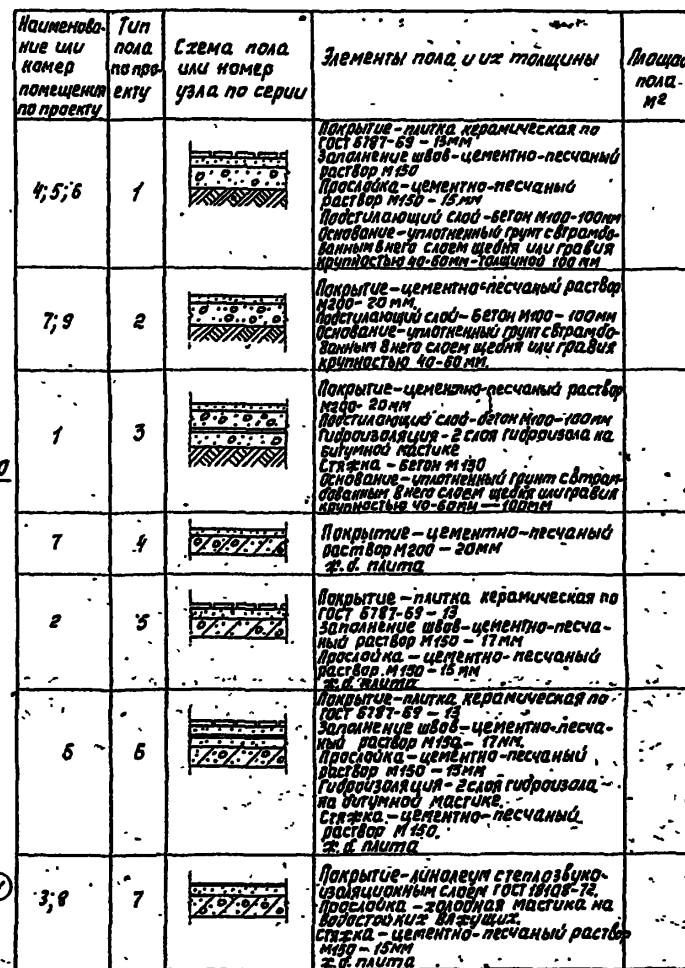 Наименова-
ние или
номер
помещения
по проекту
Тип
пола
по про-
екту
Схема пола
или номер
узла по серии
Элементы пола и их толщины
Площадь
пола
м²
4; 5; 6
1
Покрытие-плитка керамическая по
ГОСТ 6787-69 - 13мм
Заполнение швов-цементно-песчаный
раствор М150
Прослойка-цементно-песчаный
раствор М150 - 15мм
Подстилающий слой-бетон М100-100мм
Основание-уплотненный грунт с втрамбо-
ванным в него слоем щебня или гравия
крупностью 40-60мм-толщиной 100 мм
7; 9
2
Покрытие-цементно-песчаный раствор
М200- 20 мм.
Подстилающий слой-бетон М100 - 100мм
Основание-уплотненный грунт с втрамбо-
ванным в него слоем щебня или гравия
крупностью 40-60 мм.
1
3
Покрытие-цементно-песчаный раствор
М200- 20мм
Подстилающий слой-бетон М100-100мм
Гидроизоляция - 2 слоя гидроизола на
битумной мастике
Стяжка - бетон М150
Основание-уплотненный грунт с втрам-
бованным в него слоем щебня или гравия
крупностью 40-60мм — 100мм
7
4
Покрытие-цементно-песчаный
раствор М200 - 20мм
ж.б. плита
2
5
Покрытие-плитка керамическая по
ГОСТ 6787-69 - 13
Заполнение швов-цементно-песча-
ный раствор М150 - 17мм
Прослойка-цементно-песчаный
раствор М150 - 15 мм
ж.б. плита
6
6
Покрытие-плитка керамическая по
ГОСТ 6787-69 - 13
Заполнение швов-цементно-песча-
ный раствор М150 - 17мм.
Прослойка-цементно-песчаный
раствор М150 - 15мм
Гидроизоляция- 2слоя гидроизола
на битумной мастике.
Стяжка-цементно-песчаный
раствор М150.
ж.б. плита
3; 8
7
Покрытие-линолеум с теплозвуко-
изоляционным слоем ГОСТ 18108-72.
Прослойка-холодная мастика на
водостойких вяжущих.
Стяжка-цементно-песчаный раствор
М150 - 15мм
ж.б. плита